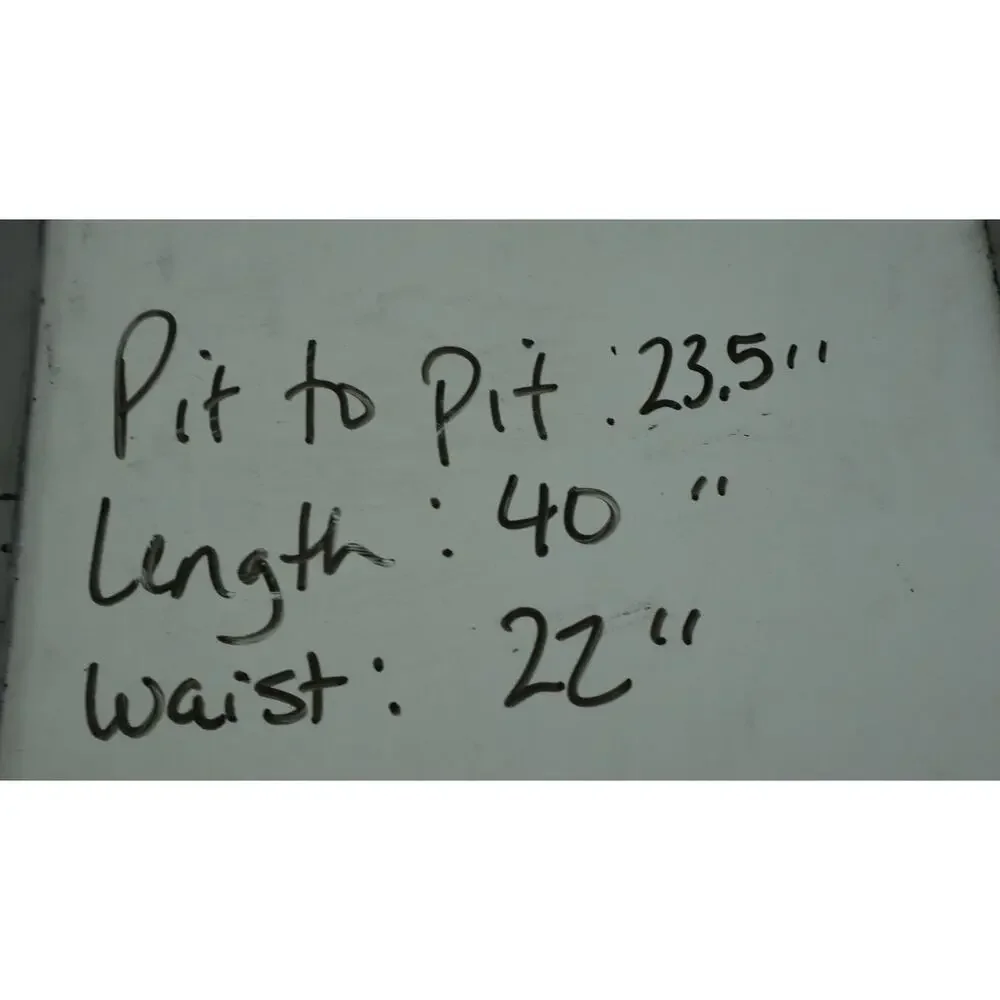 Pit to pit : 23.5"
Length : 40 "
Waist : 22"